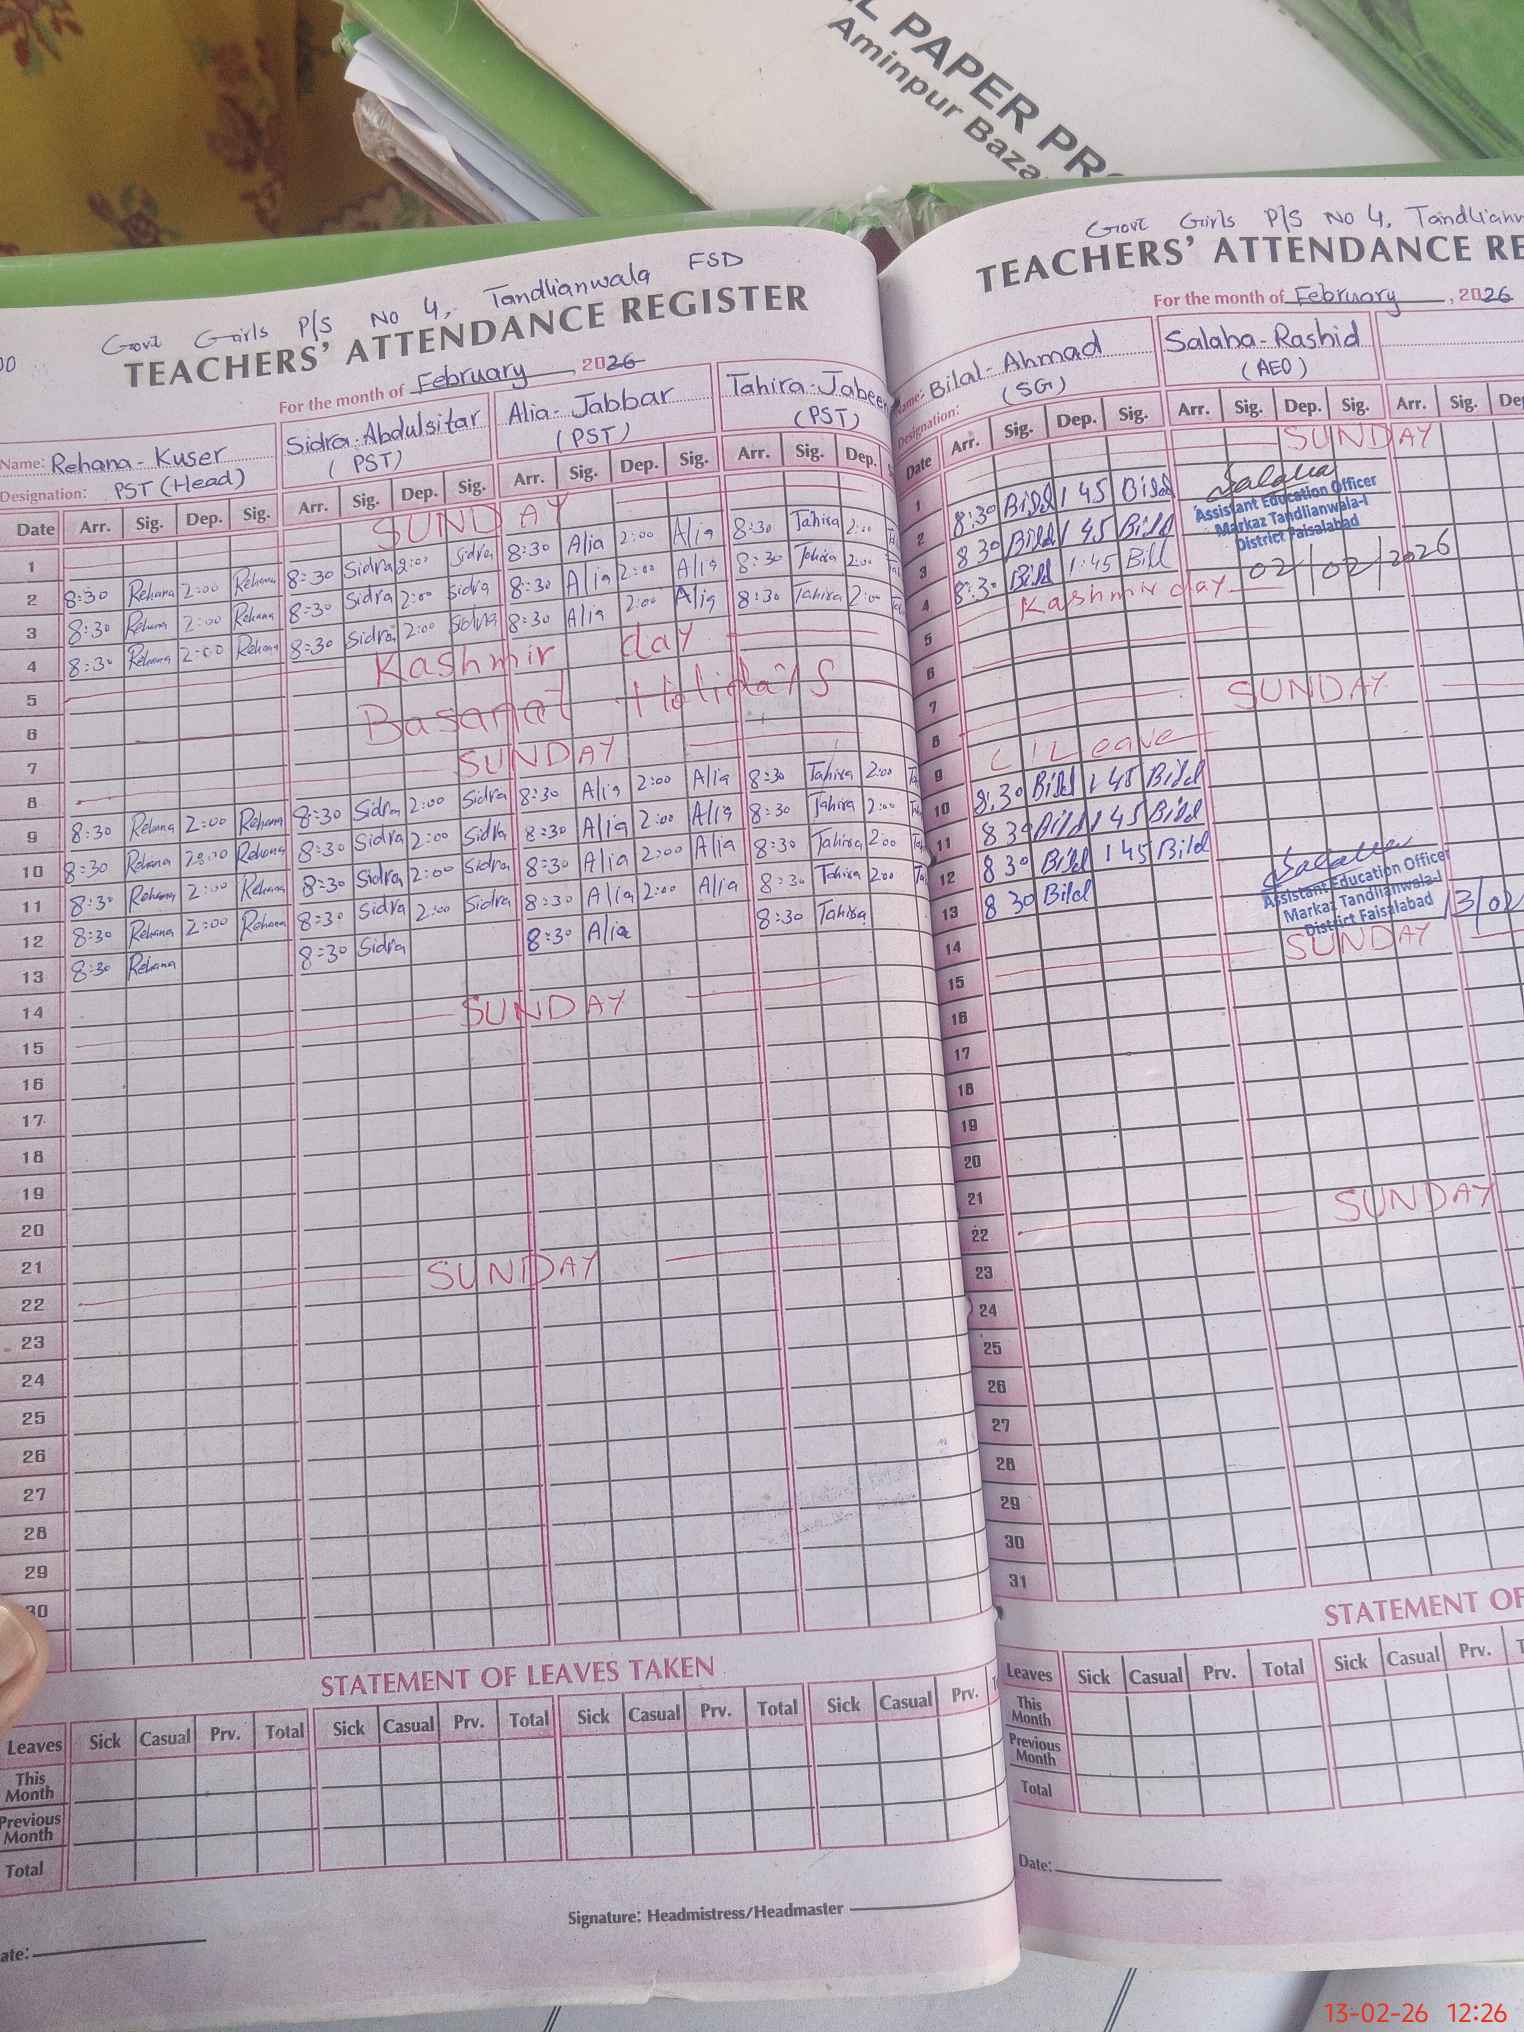 L PAPER PR
Aminpur Baza
00
Govt Girls P/S No 4, Tandlianwala FSD
TEACHERS' ATTENDANCE REGISTER
For the month of February, 2026
Name: Rehana-Kuser
Sidra-Abdulsitar
Alia-Jabbar
Tahira-Jabeen
Designation: PST (Head)
(PST)
(PST)
(PST)
Date Arr. Sig. Dep. Sig. Arr. Sig. Dep. Sig. Arr. Sig. Dep. Sig. Arr. Sig. Dep.
1 SUNDAY
2 8:30 Rehana 2:00 Rehana 8:30 Sidra 2:00 Sidra 8:30 Alia 2:00 Alia 8:30 Tahira 2:00
3 8:30 Rehana 2:00 Rehana 8:30 Sidra 2:00 Sidra 8:30 Alia 2:00 Alia 8:30 Tahira 2:00
4 8:30 Rehana 2:00 Rehana 8:30 Sidra 2:00 Sidra 8:30 Alia 2:00 Alia 8:30 Tahira 2:00
5 Kashmir day
6 Basanat Holidays
7
8 SUNDAY
9 8:30 Rehana 2:00 Rehana 8:30 Sidra 2:00 Sidra 8:30 Alia 2:00 Alia 8:30 Tahira 2:00
10 8:30 Rehana Rehana 8:30 Sidra 2:00 Sidra 8:30 Alia 2:00 Alia 8:30 Tahira 2:00
11 8:30 Rehana 2:00 Rehana 8:30 Sidra 2:00 Sidra 8:30 Alia 2:00 Alia 8:30 Tahira 2:00
12 8:30 Rehana 2:00 Rehana 8:30 Sidra 2:00 Sidra 8:30 Alia 2:00 Alia 8:30 Tahira 2:00
13 8:30 Rehana 8:30 Sidra 8:30 Alia 8:30 Tahira
14
15 SUNDAY
16
17
18
19
20
21
22 SUNDAY
23
24
25
26
27
28
29
30
STATEMENT OF LEAVES TAKEN
Leaves Sick Casual Prv. Total Sick Casual Prv. Total Sick Casual Prv. Total Sick Casual Prv.
This Month
Previous Month
Total
Signature: Headmistress/Headmaster
ate:
Govt Girls P/S No 4, Tandlianw
TEACHERS' ATTENDANCE RE
For the month of February, 2026
Name: Bilal-Ahmad
Salaha-Rashid
Designation: (SG)
(AEO)
Date Arr. Sig. Dep. Sig. Arr. Sig. Dep. Sig. Arr. Sig. Dep
1 SUNDAY
2 8:30 Bilal 1 45 Bilal
3 8 30 Bilal 1 45 Bilal
4 8:30 Bilal 1:45 Bilal
Salaha
Assistant Education Officer
Markaz Tandlianwala-I
District Faisalabad
02/02/2026
5 Kashmir day
6
7
8 SUNDAY
9 C/Leave
10 8:30 Bilal 1 45 Bilal
11 8 30 Bilal 1 45 Bilal
12 8 30 Bilal 1 45 Bilal
13 8 30 Bilal
Salaha
Assistant Education Officer
Markaz Tandlianwala-I
District Faisalabad
13/02
14
15 SUNDAY
16
17
18
19
20
21
22 SUNDAY
23
24
25
26
27
28
29
30
31
STATEMENT OF
Leaves Sick Casual Prv. Total Sick Casual Prv.
This Month
Previous Month
Total
Date:
13-02-26 12:26